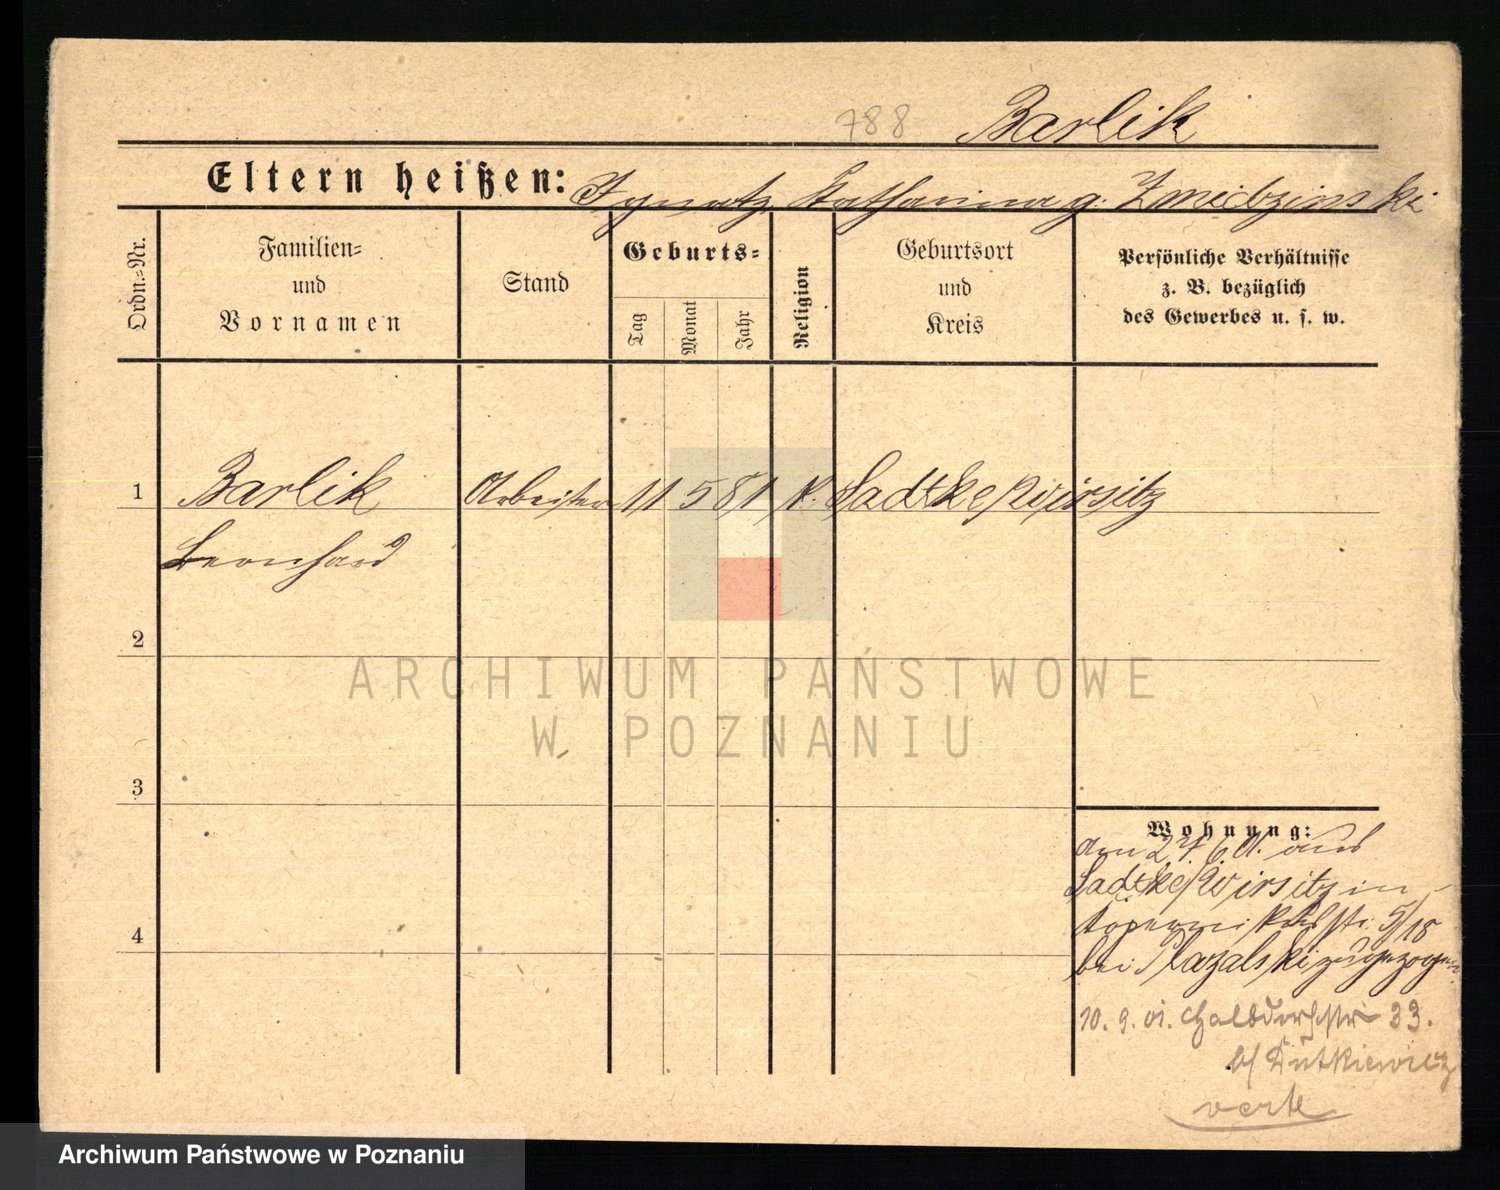 788 Barlik
Eltern heißen: Ignatz Katharina g.
Ordn.=Nr.
Familien=
und
Vornamen
Stand
Geburts=
Tag
Monat
Jahr
Religion
Geburtsort
und
Kreis
Persönliche Verhältnisse
z. B. bezüglich
des Gewerbes u. s. w.
1 Barlik Arbeiter 11 5 81 k. Sadtke/Wirsitz
Leonhard
2
ARCHIWUM PAŃSTWOWE
W POZNANIU
3
Wohnung:
am 27.6.01. aus
Sadtke/Wirsitz in
5/18
bei zugezogen
4
10. 9. 01. Halbdorfstr 33.
b/ Dutkiewicz
verte
Archiwum Państwowe w Poznaniu